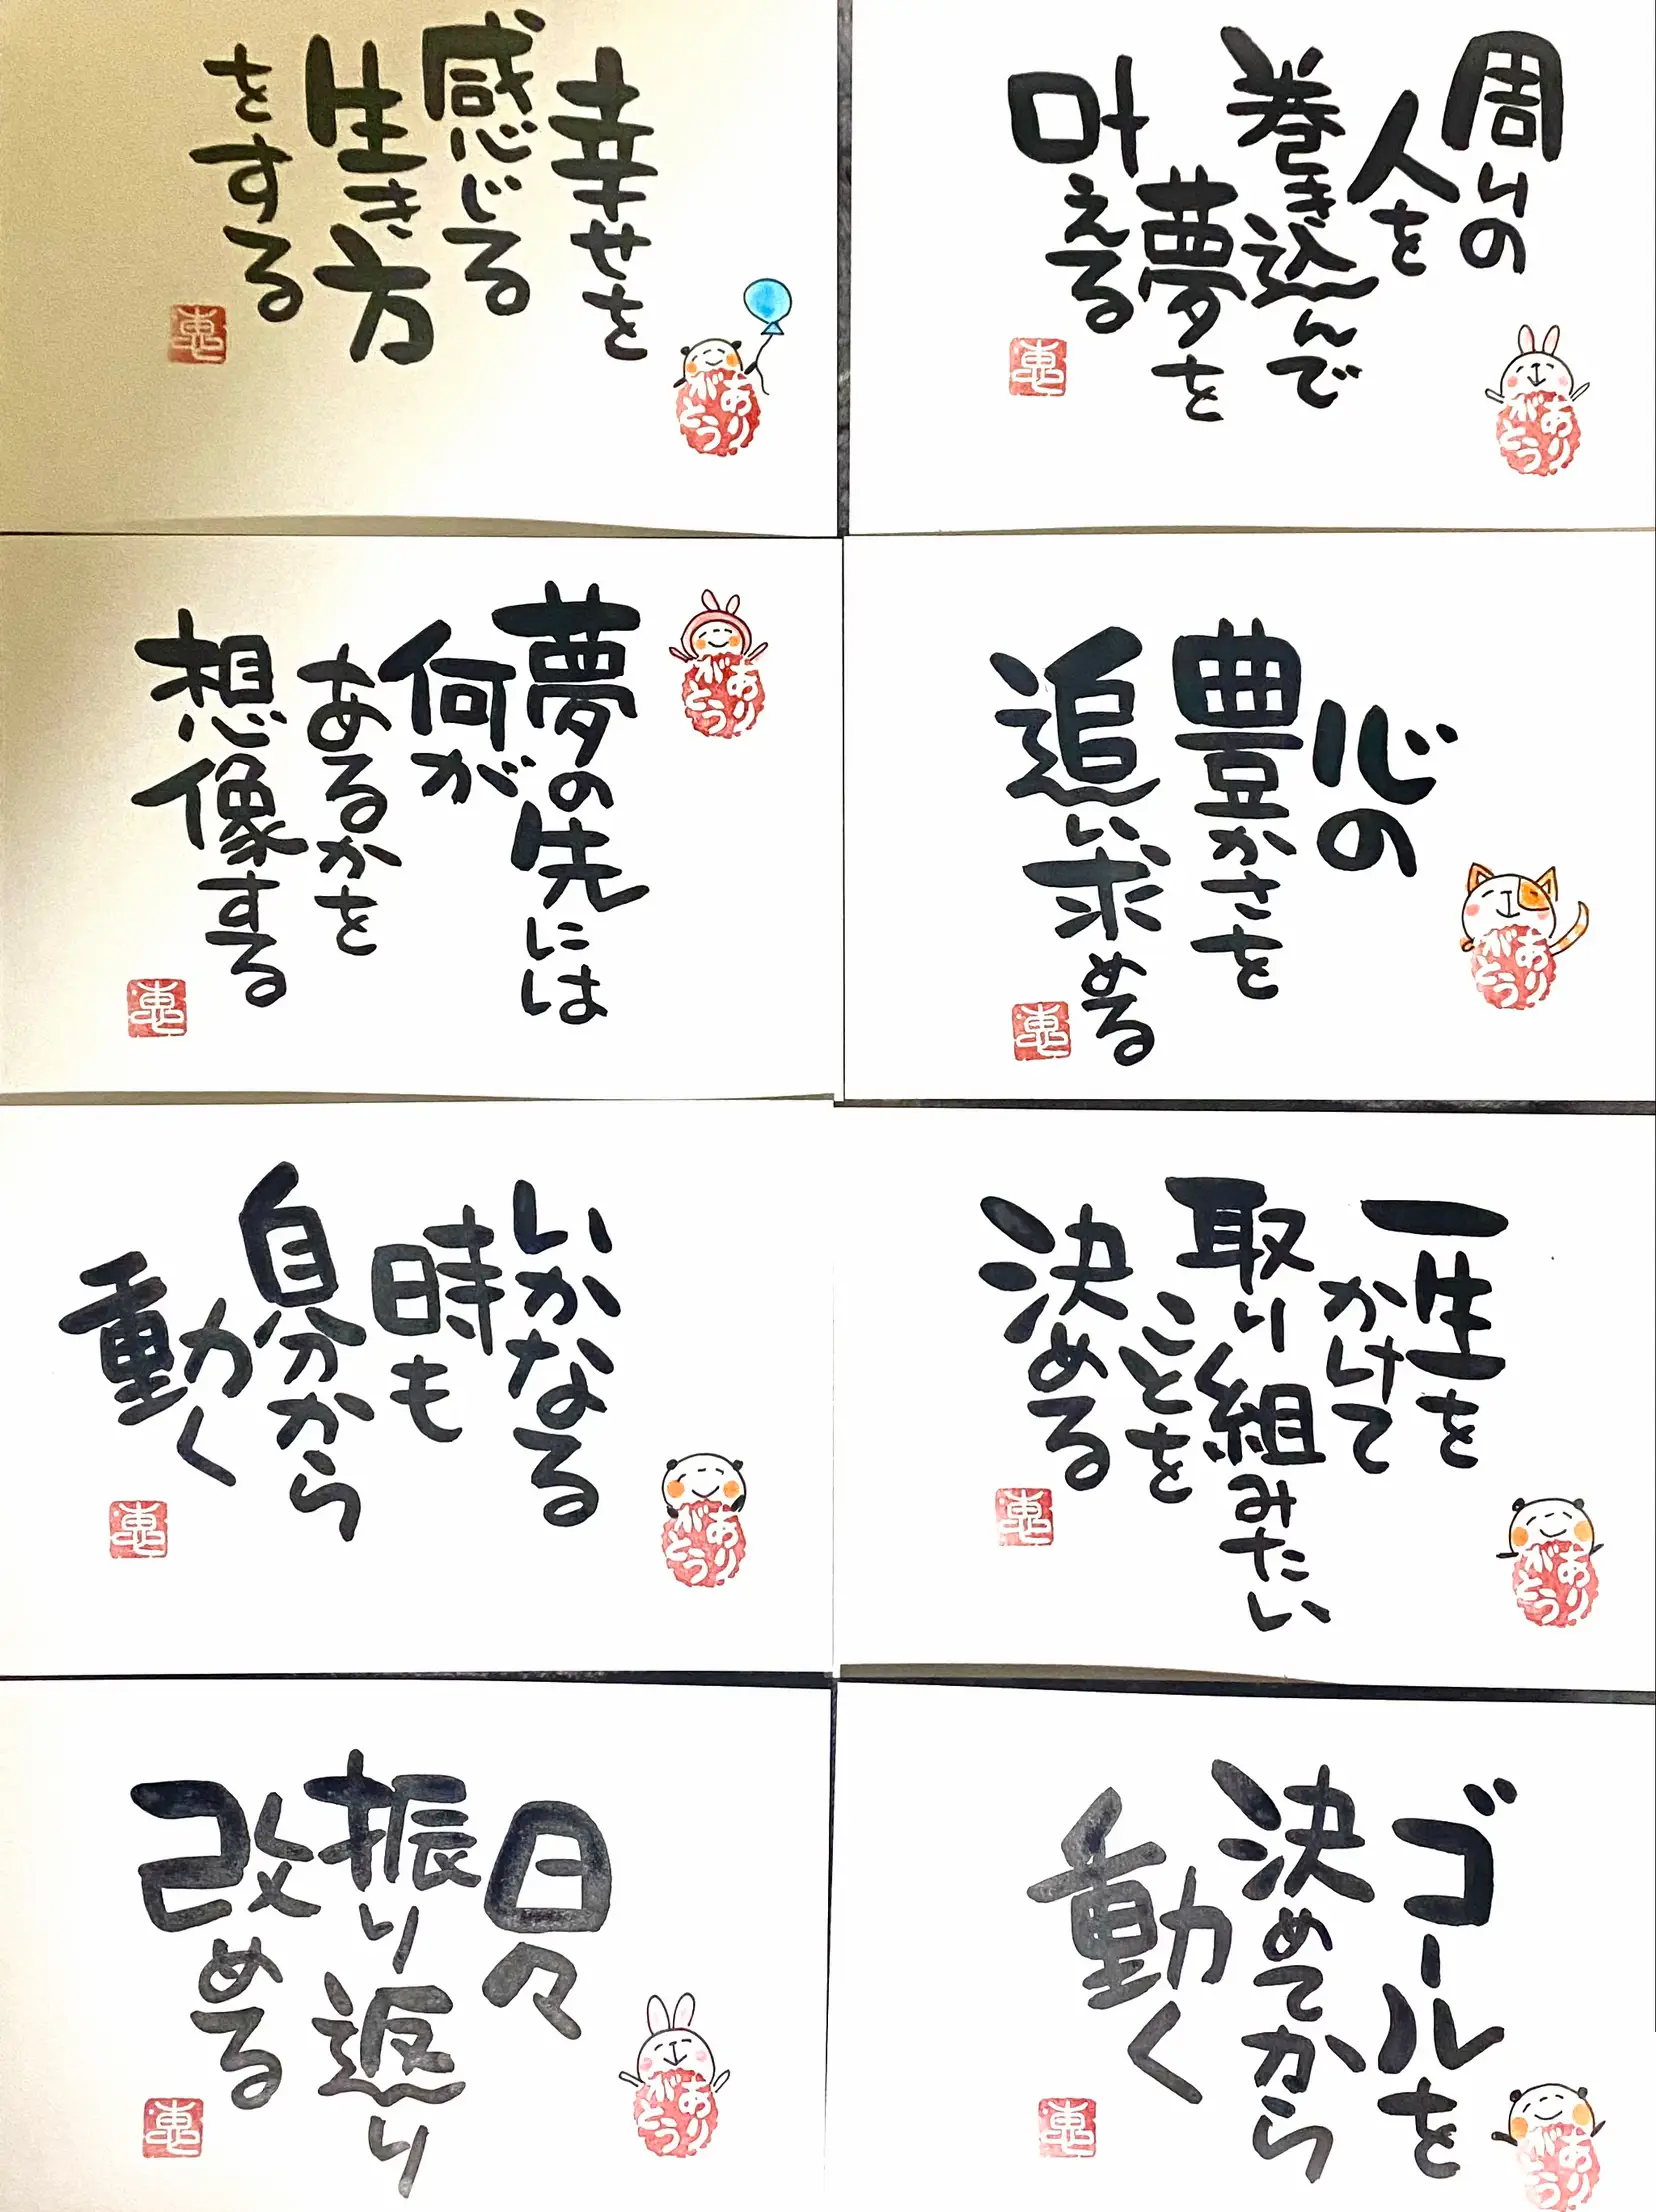 幸せを
感じる
生き方
をする
ありがとう
恵
周りの
人を
巻き込んで
夢を
叶える
ありがとう
恵
夢の先には
何が
あるかを
想像する
ありがとう
恵
心の
豊かさを
追い求める
ありがとう
恵
いかなる
時も
自分から
動く
ありがとう
恵
一生を
かけて
取り組みたい
ことを
決める
ありがとう
恵
日々
振り返り
改める
ありがとう
恵
ゴールを
決めてから
動く
ありがとう
恵